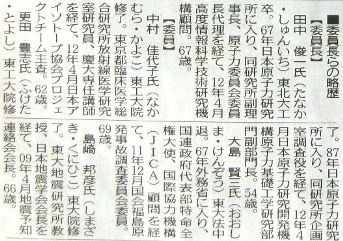 ■委員長らの略歴
【委員長】
田中 俊一氏(たなか
・しゅんいち)東北大工
卒。67年日本原子力研究
所に入り、同研究所副理
事長、原子力委員会委員
長代理などを経て、12年4月
高度情報科学技術研究機
構顧問。67歳。
【委員】
中村 佳代子氏(なか
むら・かよこ)東工大院
修了。東京都臨床医学総
合研究所放射線医学研究
室研究員、慶大専任講師
を経て、12年4月日本ア
イソトープ協会プロジェ
クトチーム主査。62歳。
更田 豊志氏(ふけた
・とよし)東工大院修
了。87年日本原子力研究
所に入り、同研究所企画
室調査役を経て、12年4
月日本原子力研究開発機
構原子力基礎工学研究部
門副部門長。54歳。
大島 賢三氏(おおし
ま・けんぞう)東大法中
退。67年外務省に入り、
国連政府代表部特命全
権大使、国際協力機構
(JICA)顧問を経
て、11年12月国会福島原
発事故調査委員会委員。
69歳。
島崎 邦彦氏(しまざ
き・くにひこ)東工大院修
了。東大地震研究所教
授、日本地震学会会長を
経て、09年4月地震予知
連絡会会長。66歳。